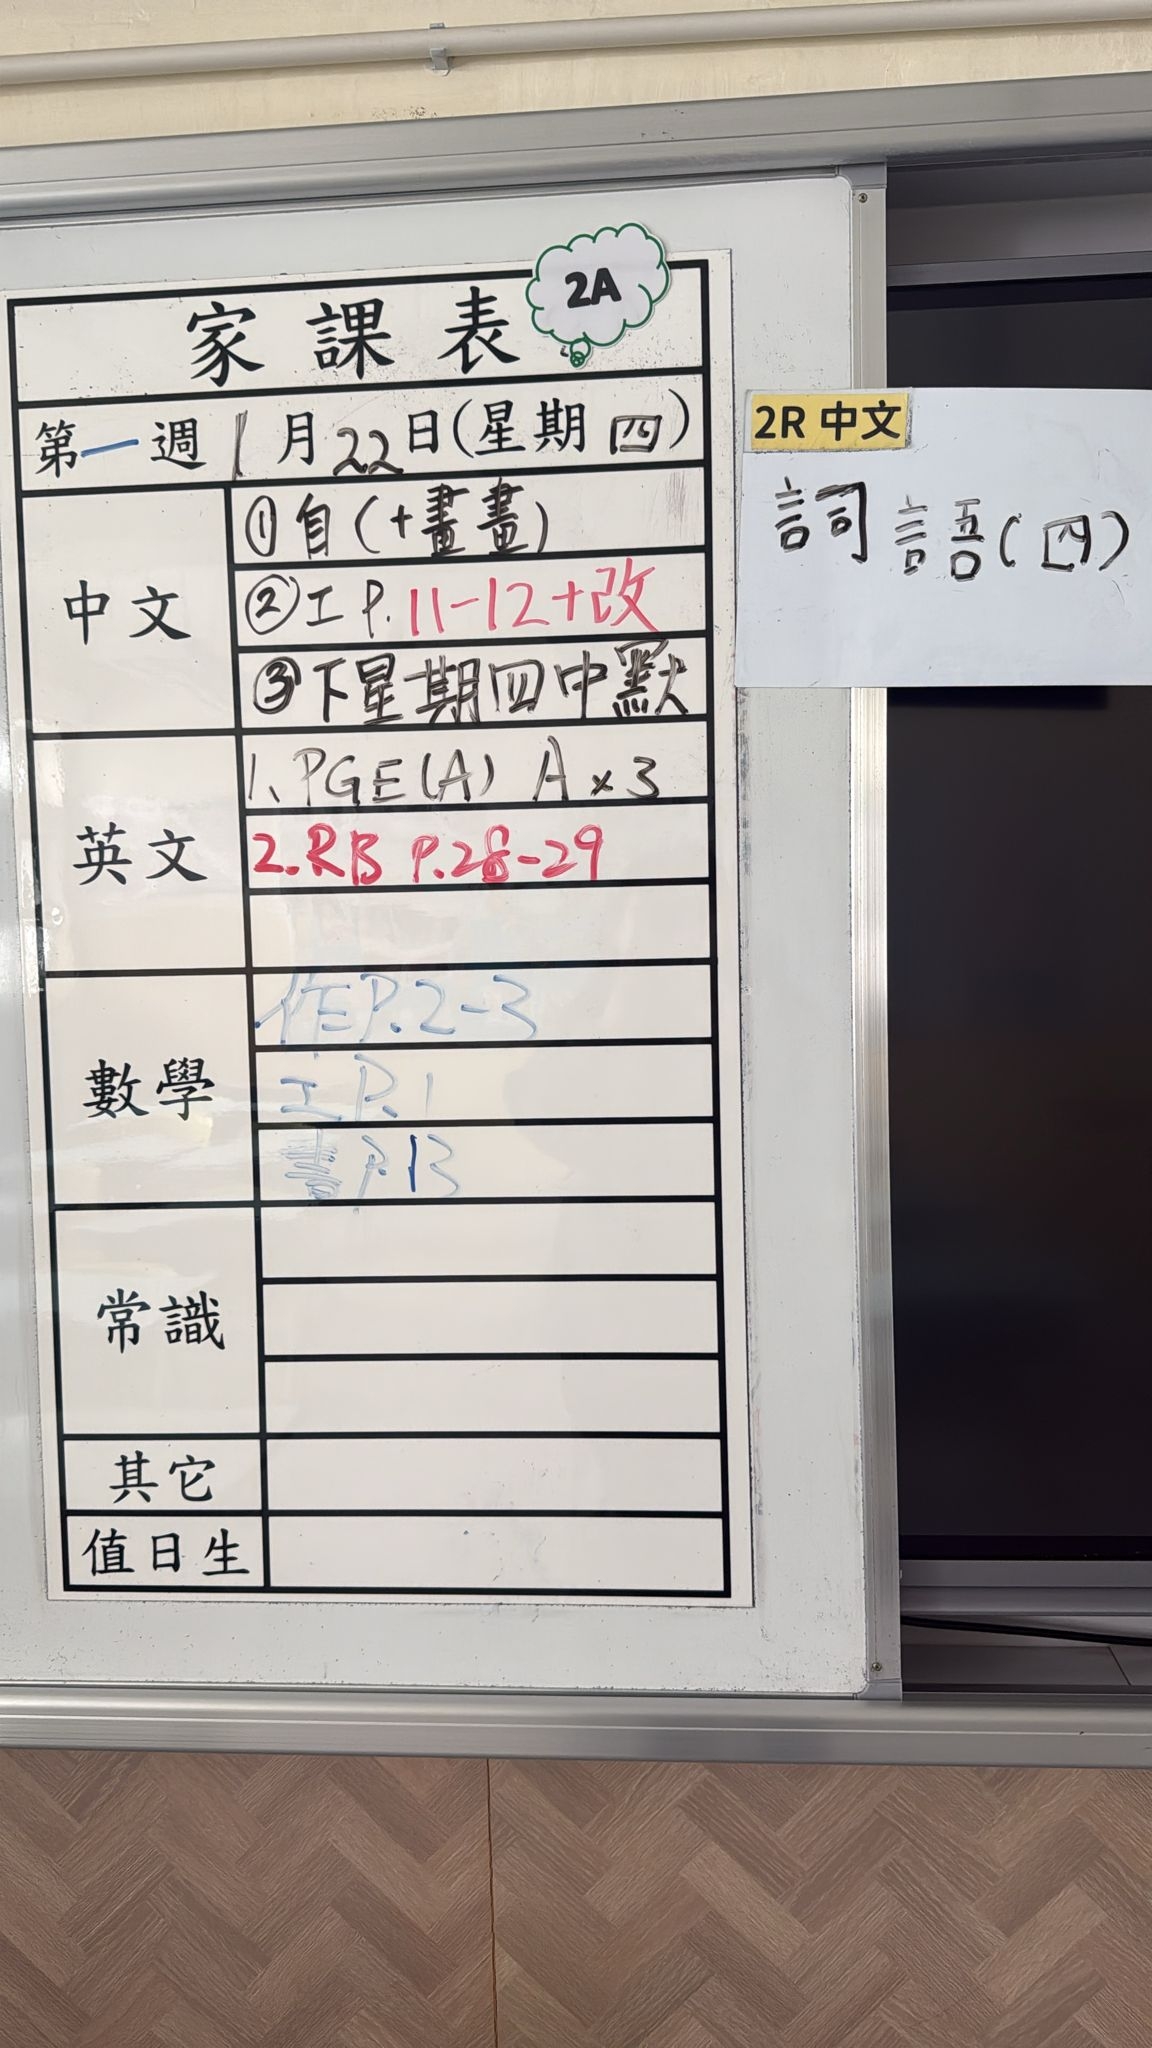 2A
家課表
第一週 1月22日(星期四)
中文
①自(+畫畫)
②工P.11-12+改
③下星期四中默
英文
1.PGE(A) A×3
2.RB P.28-29
數學
作P.2-3
工P.1
書P.13
常識
其它
值日生
2R 中文
詞語(四)